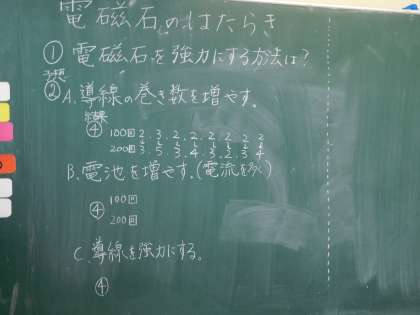 電磁石のはたらき
①電磁石を強力にする方法は?
予想
②A.導線の巻き数を増やす。
結果
④ 100回 2. 3. 2. 2. 2. 2. 2. 2
200回 3. 5. 3. 4. 3. 2. 3. 4
B.電池を増やす。(電流を強く)
④ 100回
200回
C.導線を強力にする。
④